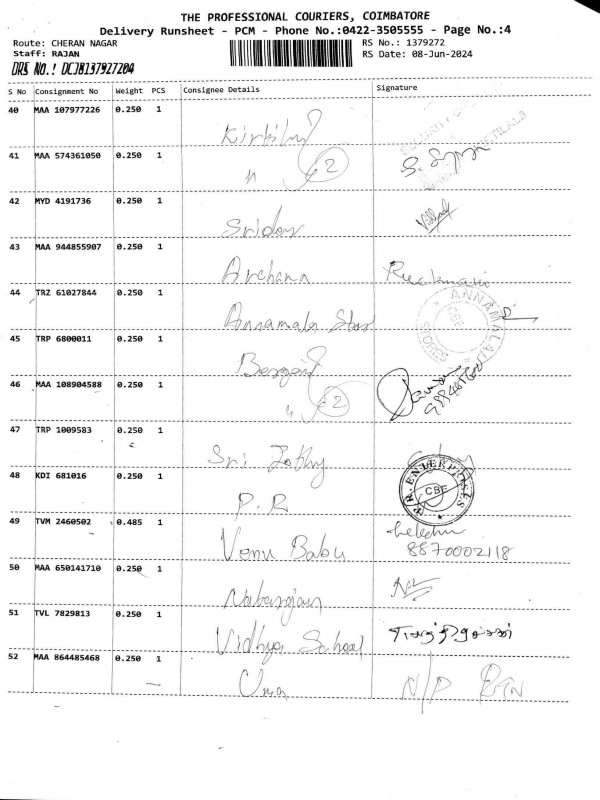 THE PROFESSIONAL COURIERS, COIMBATORE
Delivery Runsheet - PCM - Phone No.:0422-3505555 - Page No.:4
Route: CHERAN NAGAR RS No.: 1379272
Staff: RAJAN RS Date: 08-Jun-2024
DRS NO.! DCJB137927204
S No Consignment No Weight PCS Consignee Details Signature
40 MAA 107977226 0.250 1
41 MAA 574361050 0.250 1 2
42 MYD 4191736 0.250 1 Sridar
43 MAA 944855907 0.250 1 Archana Ruckmani
44 TRZ 61027844 0.250 1 Annamalai Stores ANNAMALAI STORES CBE
45 TRP 6800011 0.250 1
46 MAA 108904588 0.250 1 2
47 TRP 1009583 0.250 1 Sri Jothy
48 KDI 681016 0.250 1 P.R P.R. ENTERPRISES CBE
49 TVM 2460502 0.485 1 Venu Babu 8870002118
50 MAA 650141710 0.250 1
51 TVL 7829813 0.250 1 Vidhya School
52 MAA 864485468 0.250 1 Uma N/P RTN